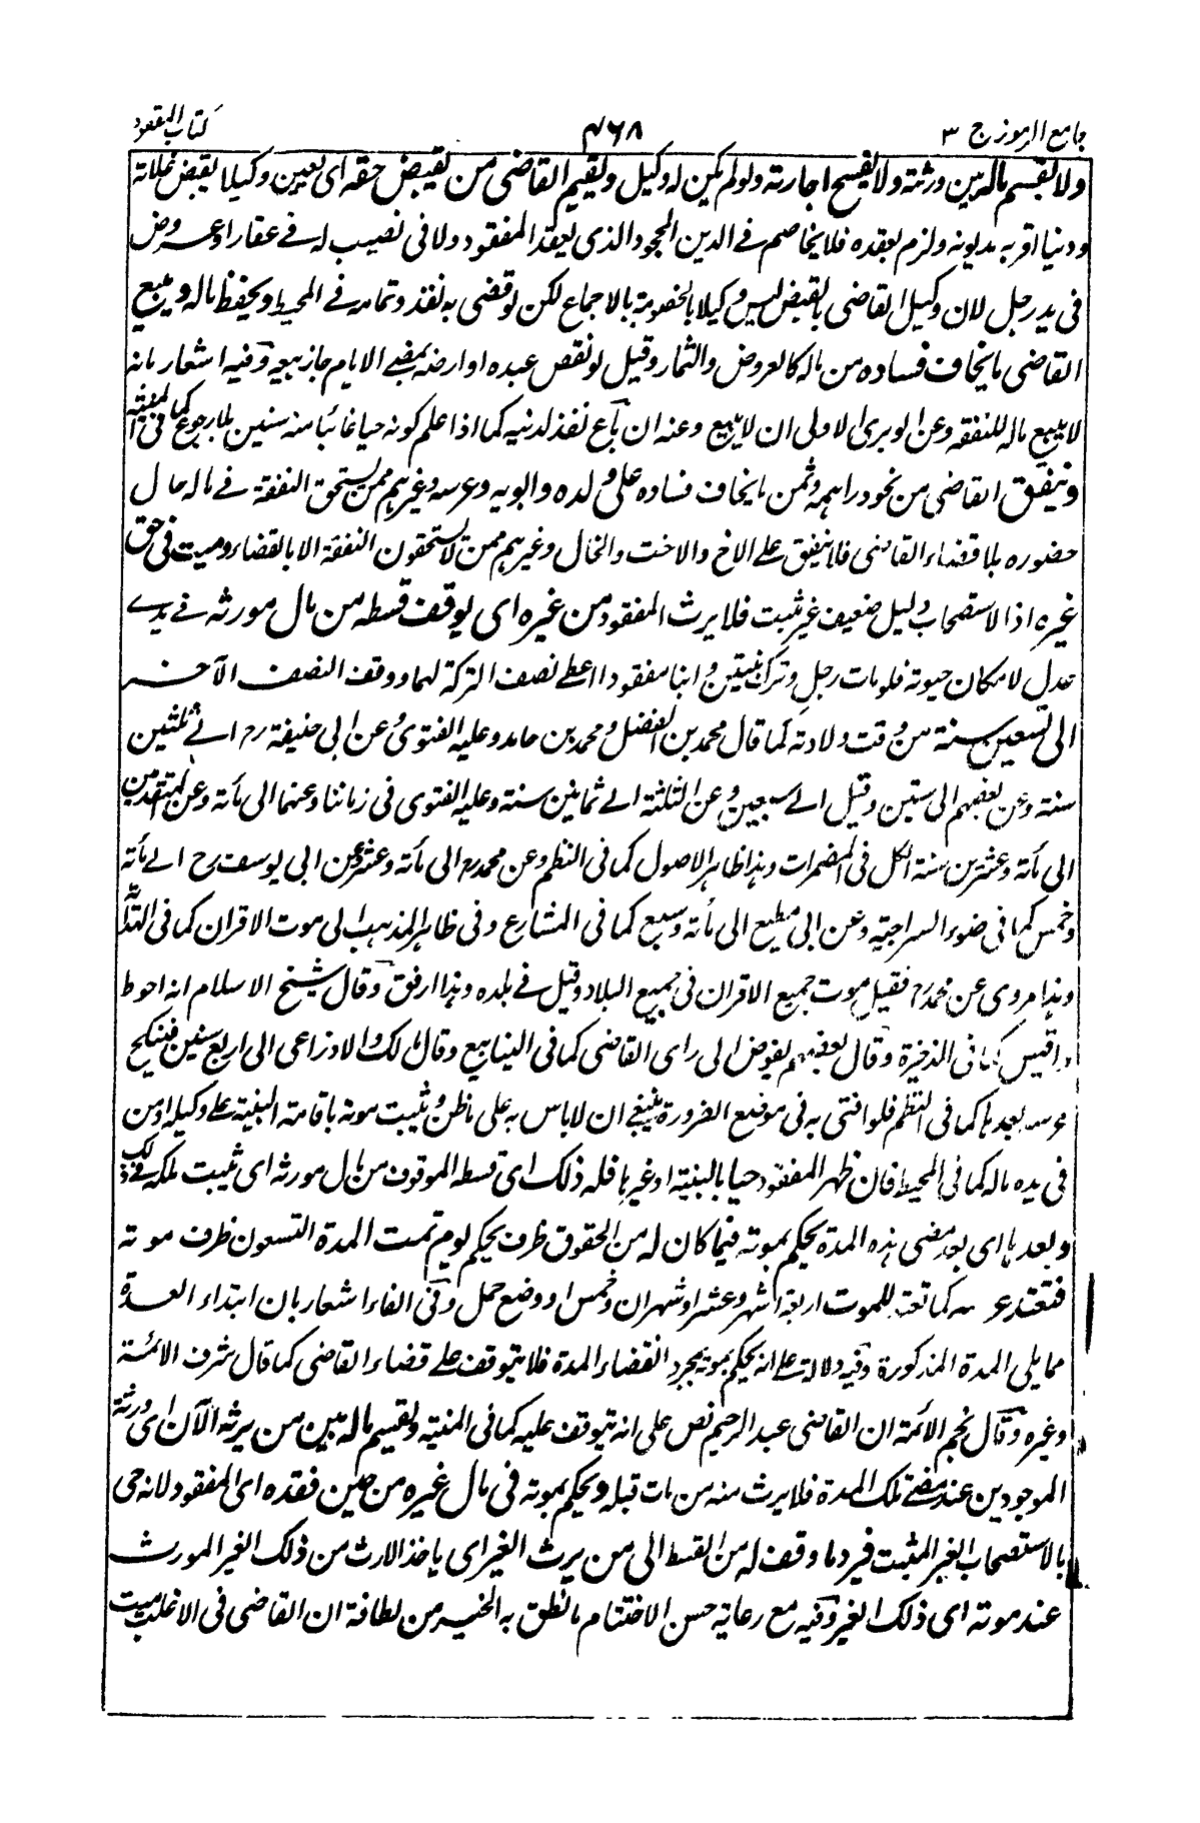 جامع الرموز ج ٣
٤٦٨
كتاب المفقود
ولا يقسم ماله بين ورثته ولا يفسخ اجارته ولو لم يكن له وكيل ويقيم القاضى من يقبض حقه اى يعين وكيلا يقبض غلاته
ودينا اقر به مديونه ولزم بعقده فلا يخاصم فى الدين المجحود الذى يعقد المفقود ولا فى نصيب له فى عقار او عروض
فى يد رجل لان وكيل القاضى بالقبض ليس وكيلا بالخصومة بالاجماع لكن لو قضى به نفذ وتمامه فى المحيط ويحفظ ماله ويبيع
القاضى ما يخاف فساده من ماله كالعروض والثمار وقيل لو نقص عبده او ارضه بمضى الايام جاز بيعه وفيه اشعار بانه
لا يبيع ماله للنفقة وعن الوبرى الاولى ان لا يبيع وعنه ان باع نفذ لدينه كما اذا علم كونه حيا غائبا منه سنين بلا رجوع كما فى المنية
وينفق القاضى من نحو دراهمه وثمن ما يخاف فساده على ولده وابويه وعرسه وغيرهم ممن يستحق النفقة فى ماله حال
حضوره بلا قضاء القاضى فلا ينفق على الاخ والاخت والخال وغيرهم ممن لا يستحقون النفقة الا بالقضاء وميت فى حق
غيره اذ الاستصحاب دليل ضعيف غير مثبت فلا يرث المفقود من غيره اى يوقف قسطه من مال مورثه فى يدى
عدل لامكان حيوته فلو مات رجل وترك بنتين وابنا مفقودا اعطى نصف التركة لهما ووقف النصف الآخر
الى تسعين سنة من وقت ولادته كما قال محمد بن الفضل ومحمد بن حامد وعليه الفتوى وعن ابى حنيفة رم الى ثلثين
سنة وعن بعضهم الى ستين وقيل الى سبعين وعن الثلثة الى ثمانين سنة وعليه الفتوى فى زماننا وعنهما الى مأته وعن المتقدمين
الى مأته وعشرين سنة الكل فى المضمرات وهذا ظاهر الاصول كما فى النظم وعن محمد رم الى مأته وعشر وعن ابى يوسف رح الى مأته
وخمس كما فى ضوء السراجية وعن ابى مطيع الى مأته وسبع كما فى المشارع وفى ظاهر المذهب الى موت الاقران كما فى
وهذا مروى عن محمد رم فقيل موت جميع الاقران فى جميع البلاد وقيل فى بلده وهذا ارفق وقال شيخ الاسلام انه احوط
واقيس كما فى الذخيرة وقال بعضهم يفوض الى راى القاضى كما فى الينابيع وقال مالك والاوزاعى الى اربع سنين فينكح
عرسه بعدها كما فى النظم فلو افتى به فى موضع الضرورة ينبغى ان لا باس به على ما ظن ويثبت موته باقامة البينة على وكيله او من
فى يده ماله كما فى المحيط فان ظهر المفقود حيا بالبينة او غيرها فله ذلك اى قسطه الموقوف من مال مورثه اى يثبت ملكه فى ذلك
وبعدها اى بعد مضى هذه المدة يحكم بموته فيما كان له من الحقوق ظرف يحكم يوم تمت المدة التسعون ظرف موته
فتعتد عرسه كما تعتد للموت اربعة اشهر وعشرا او شهران وخمس او وضع حمل وفى الفاء اشعار بان ابتداء العدة
مما يلى المدة المذكورة وفيه دلالة على انه يحكم بموته بمجرد انقضاء المدة فلا يتوقف على قضاء القاضى كما قال شرف الائمة
وغيره وقال نجم الائمة ان القاضى عبد الرحيم نص على انه يتوقف عليه كما فى المنية ويقسم ماله بين من يرثه الآن اى ورثته
الموجودين عند مضى تلك المدة فلا يرث منه من مات قبله ويحكم بموته فى مال غيره من حين فقده اى المفقود لانه حى
بالاستصحاب الغير المثبت فيرد ما وقف له من القسط الى من يرث الغير اى ياخذ الارث من ذلك الغير المورث
عند موته اى ذلك الغير وفيه مع رعاية حسن الاختتام ما نطق به الخبير من لطافة ان القاضى فى الاغلب ميت